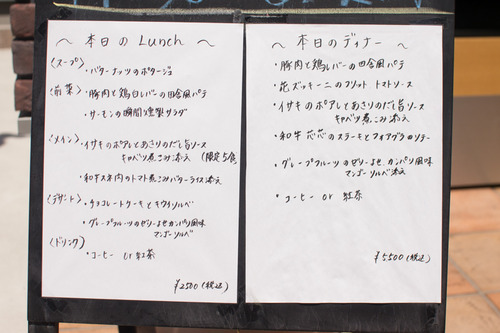 ～ 本日の Lunch ～
〈スープ〉
・バターナッツのポタージュ
〈前菜〉
・豚肉と鶏白レバーの田舎風パテ
・サーモンの瞬間燻製サラダ
〈メイン〉
・イサキのポアレとあさりのだし旨ソース
キャベツ煮こみ添え (限定5食)
・和牛スネ肉のトマト煮こみバターライス添え
〈デザート〉
・チョコレートケーキとキウイソルベ
・グレープフルーツのゼリーよせカンパリ風味
マンゴーソルベ
〈ドリンク〉
・コーヒー or 紅茶
¥2500 (税込)
～ 本日のディナー ～
・豚肉と鶏レバーの田舎風パテ
・花ズッキーニのフリット トマトソース
・イサキのポアレとあさりのだし旨ソース
キャベツ煮こみ添え
・和牛 芯芯のステーキとフォアグラのソテー
・グレープフルーツのゼリーよせ、カンパリ風味
マンゴーソルベ添え
・コーヒー or 紅茶
¥5500 (税込)